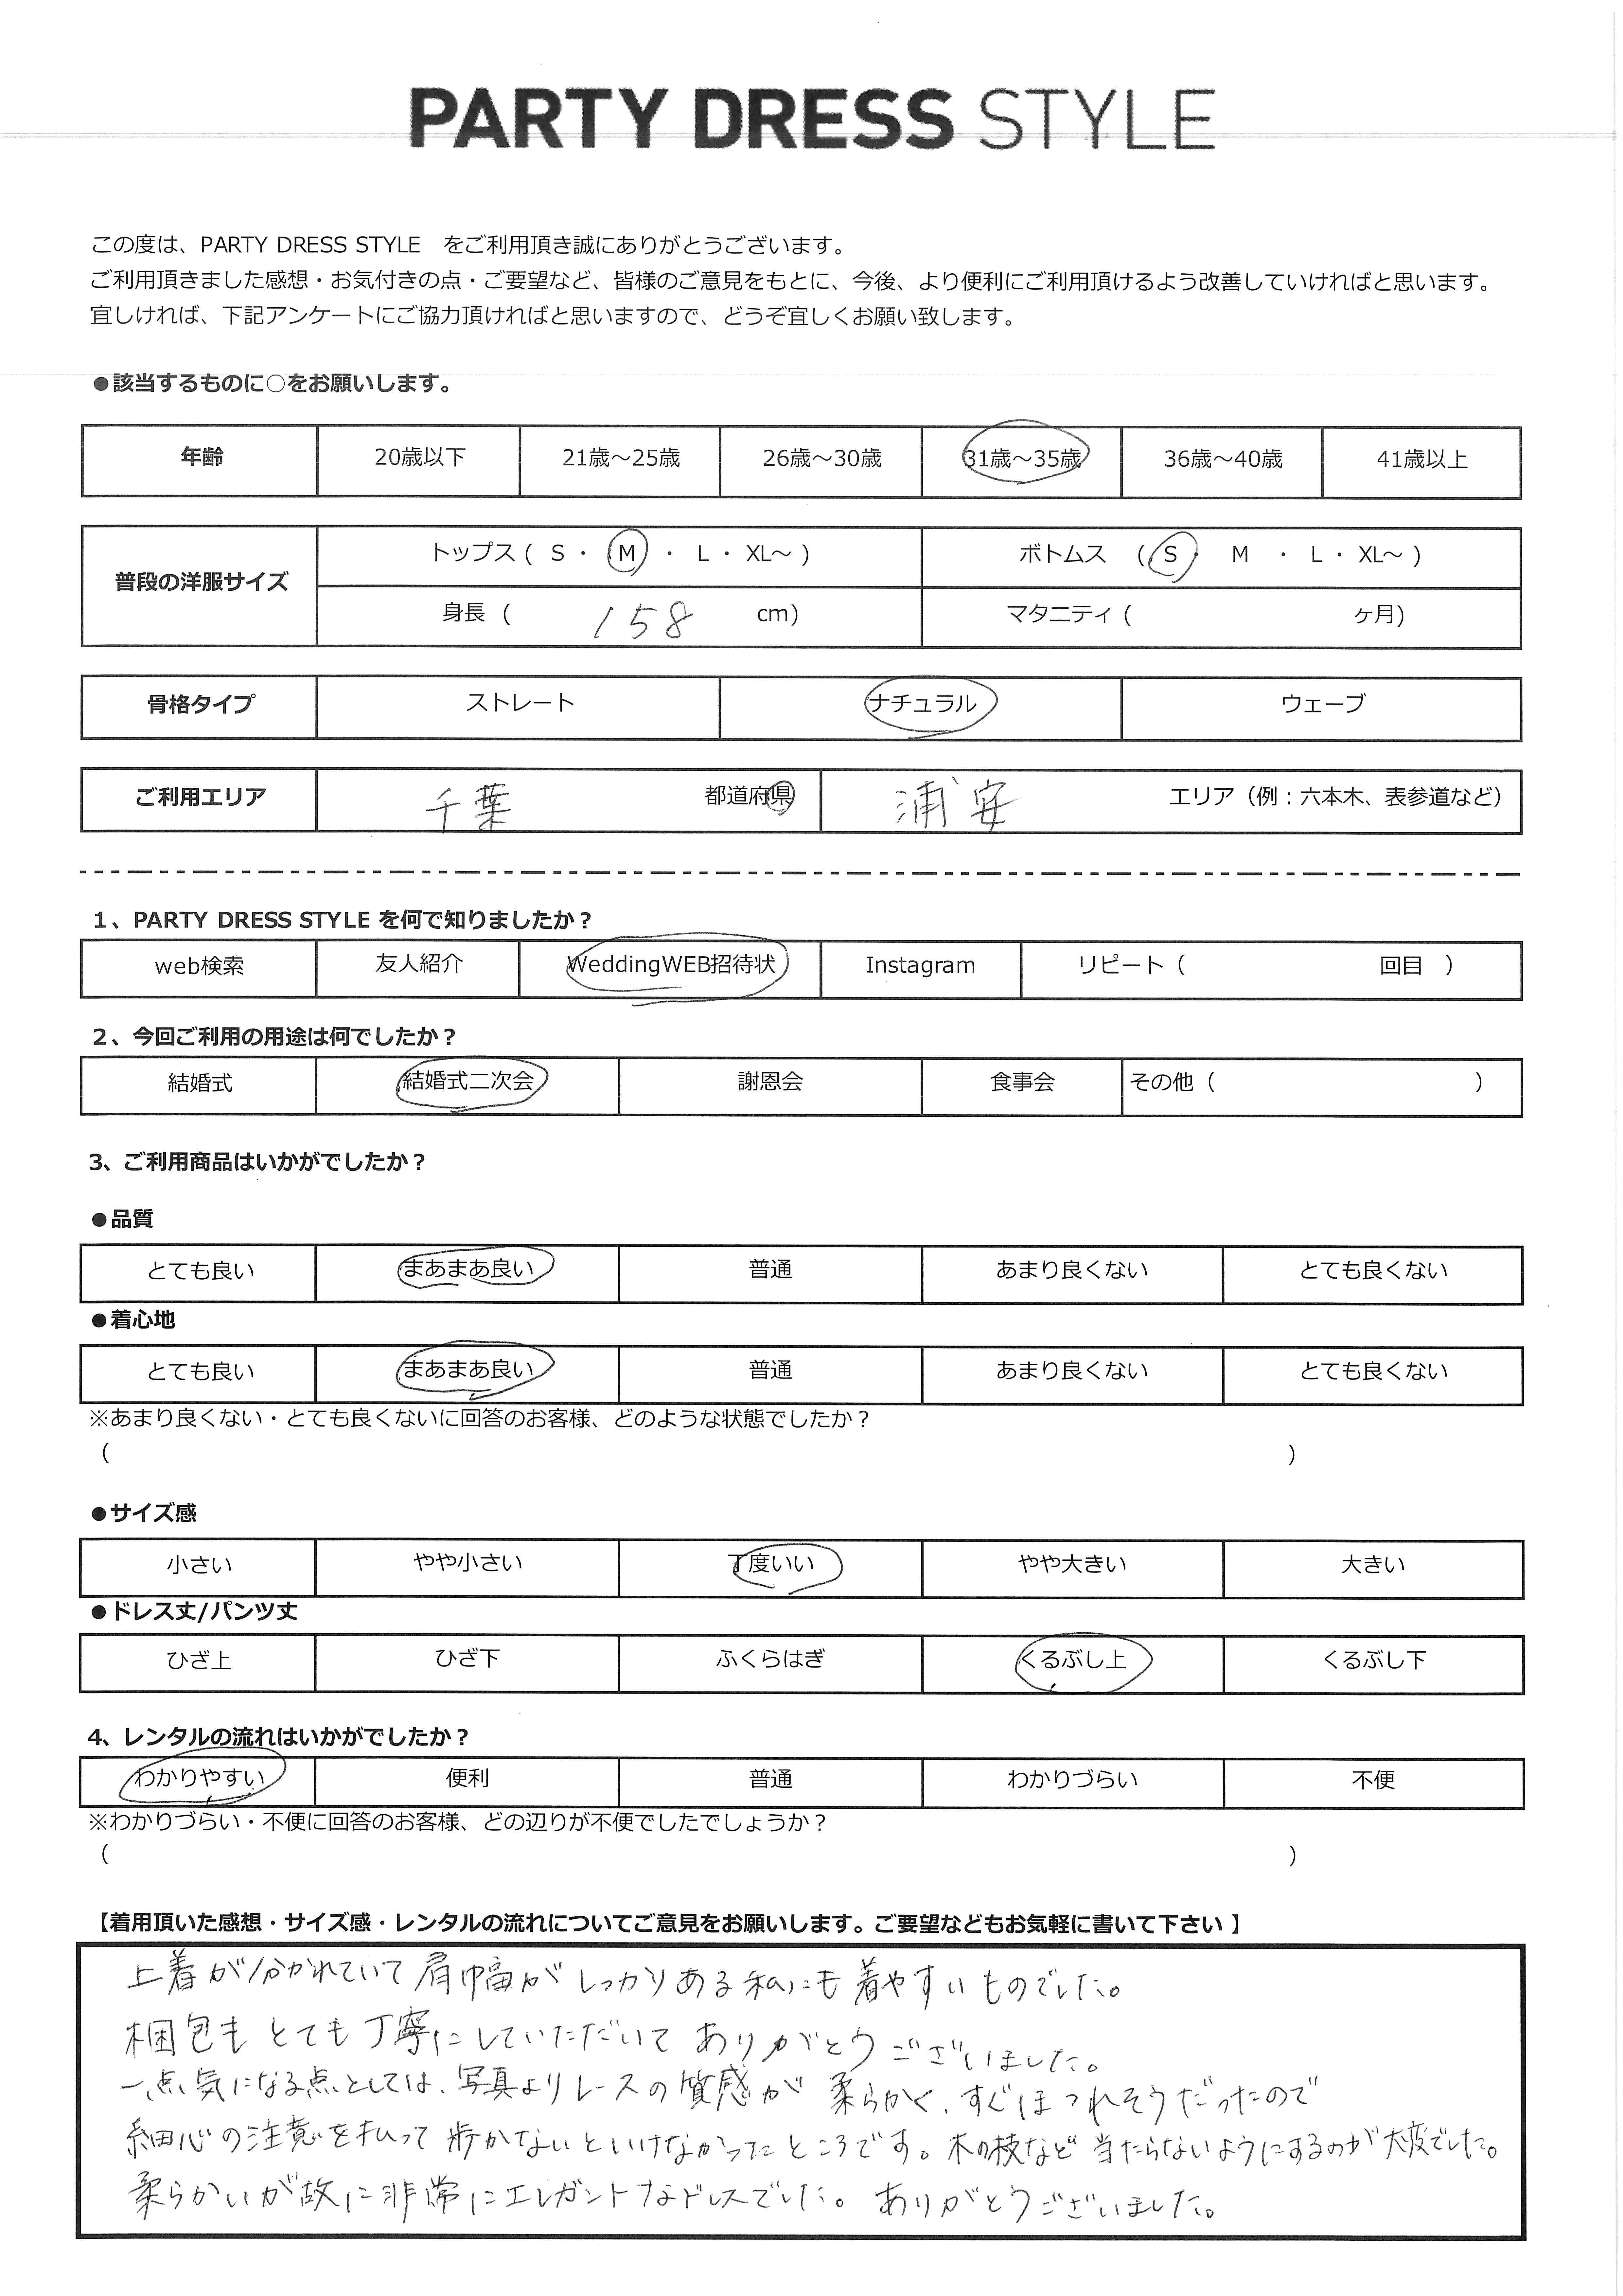 PARTY DRESS STYLE
この度は、PARTY DRESS STYLE　をご利用頂き誠にありがとうございます。
ご利用頂きました感想・お気付きの点・ご要望など、皆様のご意見をもとに、今後、より便利にご利用頂けるよう改善していければと思います。
宜しければ、下記アンケートにご協力頂ければと思いますので、どうぞ宜しくお願い致します。
●該当するものに○をお願いします。
年齢 20歳以下 21歳～25歳 26歳～30歳 31歳～35歳 36歳～40歳 41歳以上
普段の洋服サイズ トップス ( S ・ M ・ L ・ XL～ ) ボトムス ( S ・ M ・ L ・ XL～ )
身長 ( 158 cm) マタニティ ( ヶ月)
骨格タイプ ストレート ナチュラル ウェーブ
ご利用エリア 千葉 都道府県 浦安 エリア（例：六本木、表参道など）
1、PARTY DRESS STYLE を何で知りましたか？
web検索 友人紹介 WeddingWEB招待状 Instagram リピート（ 回目 ）
2、今回ご利用の用途は何でしたか？
結婚式 結婚式二次会 謝恩会 食事会 その他（ ）
3、ご利用商品はいかがでしたか？
●品質
とても良い まあまあ良い 普通 あまり良くない とても良くない
●着心地
とても良い まあまあ良い 普通 あまり良くない とても良くない
※あまり良くない・とても良くないに回答のお客様、どのような状態でしたか？
（ ）
●サイズ感
小さい やや小さい 丁度いい やや大きい 大きい
●ドレス丈/パンツ丈
ひざ上 ひざ下 ふくらはぎ くるぶし上 くるぶし下
4、レンタルの流れはいかがでしたか？
わかりやすい 便利 普通 わかりづらい 不便
※わかりづらい・不便に回答のお客様、どの辺りが不便でしたでしょうか？
（ ）
【着用頂いた感想・サイズ感・レンタルの流れについてご意見をお願いします。ご要望などもお気軽に書いて下さい】
上着が分かれていて肩巾幅がしっかりある私にも着やすいものでした。
梱包もとても丁寧にしていただいてありがとうございました。
一点気になる点としては、写真よりレースの質感が柔らかく、すぐほつれそうだったので
細心の注意を払って歩かないといけなかったところです。木の枝など当たらないようにするのが大変でした。
柔らかいが故に非常にエレガントなドレスでした。ありがとうございました。